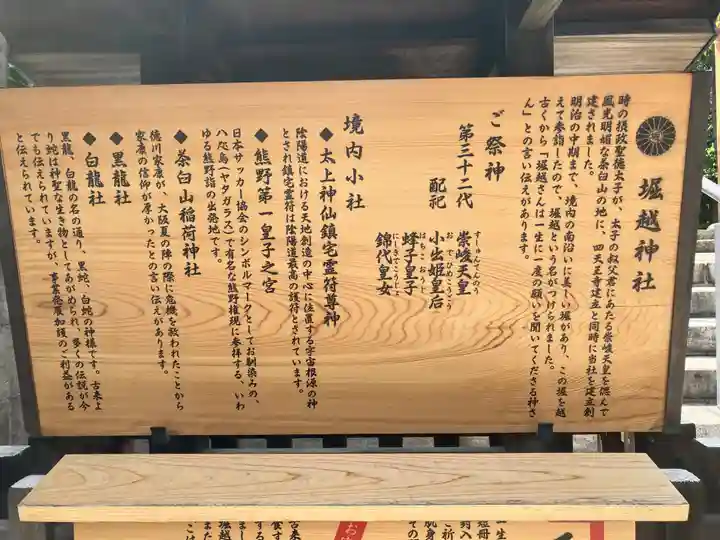 堀越神社
時の摂政聖徳太子が、太子の叔父君にあたる崇峻天皇を偲んで
風光明媚な茶臼山の地に、四天王寺建立と同時に当社を建立創
建されました。
明治の中期まで、境内の南沿いに美しい堀があり、この堀を越
えて参詣したので、堀越という名がつけられました。
古くから「堀越さんは一生に一度の願いを聞いてくださる神さ
ん」との言い伝えがあります。
ご祭神
第三十二代 崇峻天皇
すしゅんてんのう
配祀 小出姫皇后
蜂子皇子
はちこおうじ
錦代皇女
境内小社
◆太上神仙鎮宅霊符尊神
陰陽道における天地創造の中心に位置する宇宙根源の神
とされ鎮宅霊符は陰陽道最高の護符とされています。
◆熊野第一皇子之宮
日本サッカー協会のシンボルマークとしてお馴染みの、
八咫烏(ヤタガラス)で有名な熊野権現に参拝する、いわ
ゆる熊野詣の出発地です。
◆茶臼山稲荷神社
徳川家康が、大阪夏の陣の際に危機を救われたことから
家康の信仰が厚かったとの言い伝えがあります。
◆黒龍社
◆白龍社
黒龍、白龍の名の通り、黒蛇、白蛇の神様です。古来よ
り蛇は神聖な生き物としてあがめられ、多くの伝説が今
でも伝えられていますが、事業発展加護のご利益がある
と伝えられています。